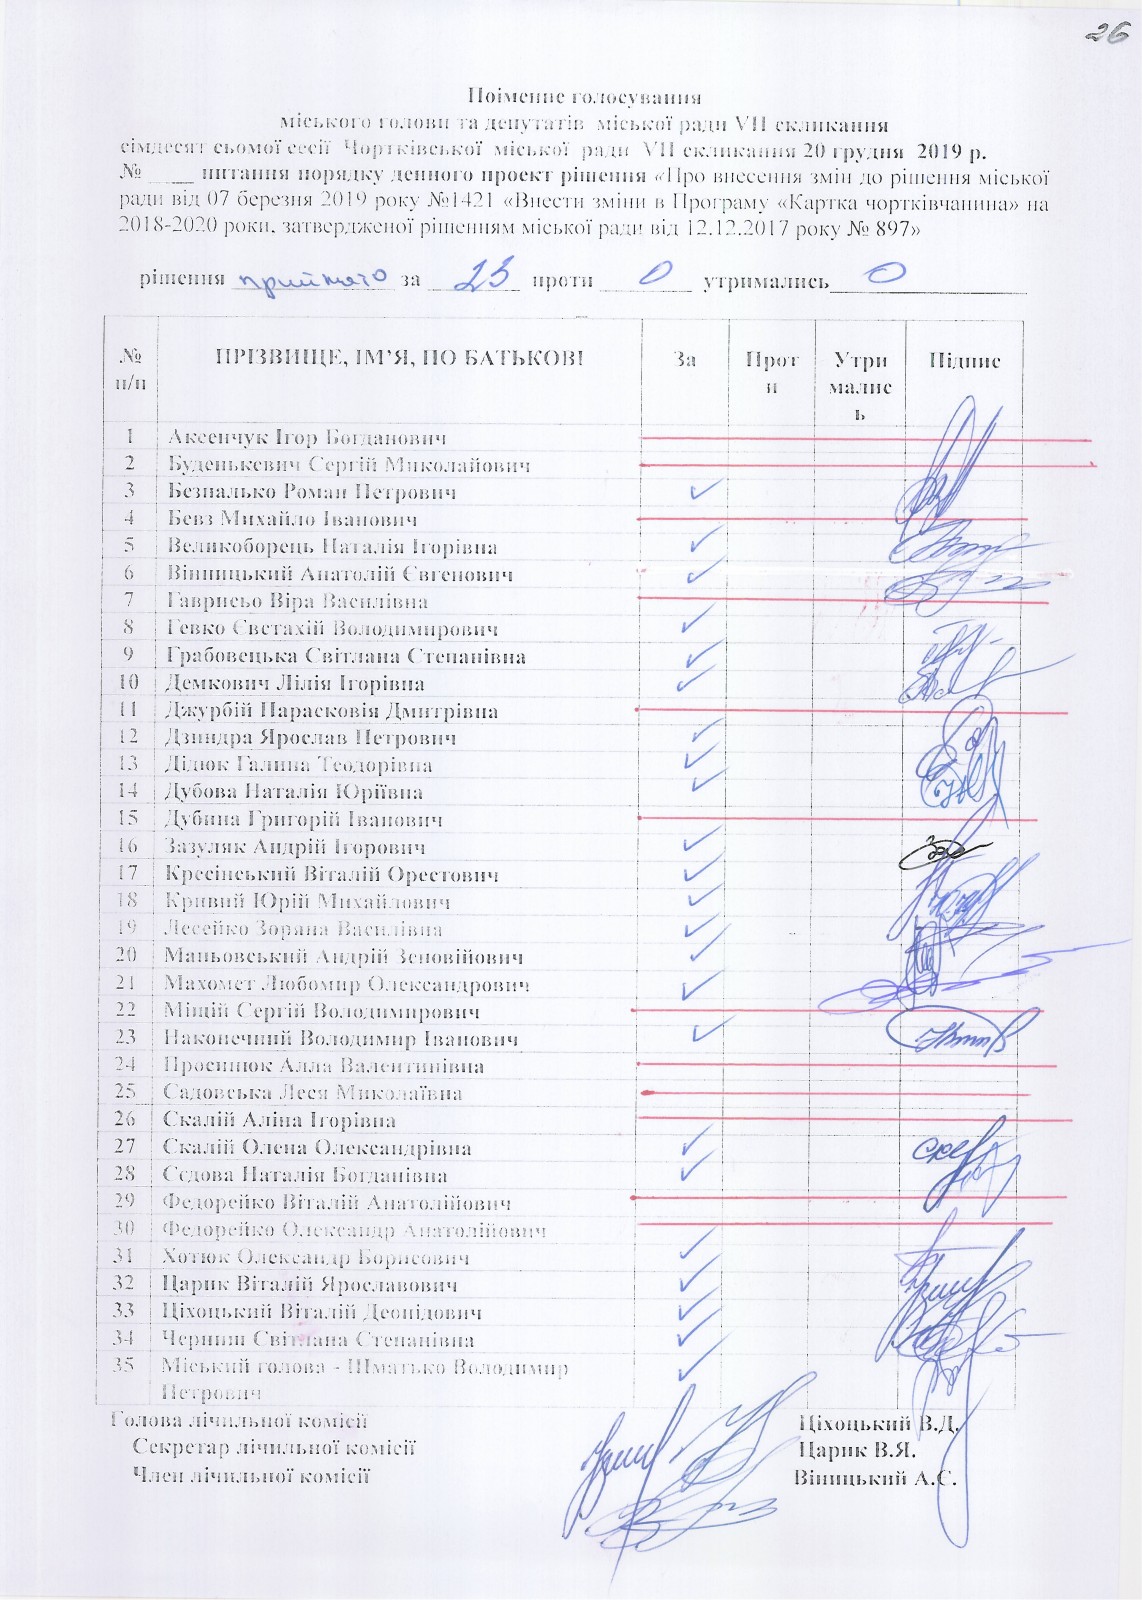 26
Поіменне голосування
міського голови та депутатів міської ради VII скликання
сімдесят сьомої сесії Чортківської міської ради VII скликання 20 грудня 2019 р.
№ ____ питання порядку денного проект рішення «Про внесення змін до рішення міської
ради від 07 березня 2019 року №1421 «Внести зміни в Програму «Картка чортківчанина» на
2018-2020 роки, затвердженої рішенням міської ради від 12.12.2017 року № 897»
рішення прийнято за 23 проти 0 утримались 0
№ п/п ПРІЗВИЩЕ, ІМ’Я, ПО БАТЬКОВІ За Проти Утримались Підпис
1 Аксенчук Ігор Богданович
2 Буденькевич Сергій Миколайович
3 Безпалько Роман Петрович ✓
4 Бевз Михайло Іванович
5 Великоборець Наталія Ігорівна ✓
6 Вінницький Анатолій Євгенович ✓
7 Гаврисьо Віра Василівна
8 Гевко Євстахій Володимирович ✓
9 Грабовецька Світлана Степанівна ✓
10 Демкович Лілія Ігорівна ✓
11 Джурбій Парасковія Дмитрівна
12 Дзиндра Ярослав Петрович ✓
13 Дідюк Галина Теодорівна ✓
14 Дубова Наталія Юріївна ✓
15 Дубина Григорій Іванович
16 Зазуляк Андрій Ігорович ✓
17 Кресінський Віталій Орестович ✓
18 Кривий Юрій Михайлович ✓
19 Лесейко Зоряна Василівна ✓
20 Маньовський Андрій Зеновійович ✓
21 Махомет Любомир Олександрович ✓
22 Міщій Сергій Володимирович
23 Наконечний Володимир Іванович ✓
24 Просинюк Алла Валентинівна
25 Садовська Леся Миколаївна
26 Скалій Аліна Ігорівна
27 Скалій Олена Олександрівна ✓
28 Сєдова Наталія Богданівна ✓
29 Федорейко Віталій Анатолійович
30 Федорейко Олександр Анатолійович
31 Хотюк Олександр Борисович ✓
32 Царик Віталій Ярославович ✓
33 Ціхоцький Віталій Леонідович ✓
34 Черниш Світлана Степанівна ✓
35 Міський голова - Шматько Володимир ✓
Петрович
Голова лічильної комісії Ціхоцький В.Д.
Секретар лічильної комісії Царик В.Я.
Член лічильної комісії Вінницький А.Є.